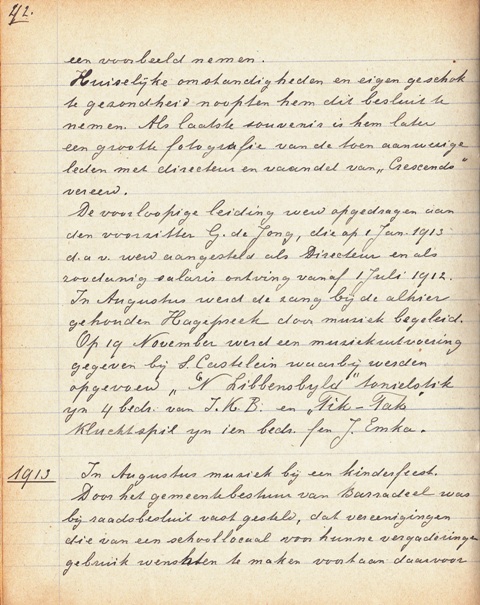 42.
een voorbeeld nemen.
Huiselijke omstandigheden en eigen geschok
te gezondheid noopten hem dit besluit te
nemen. Als laatste souvenir is hem later
een groote fotografie van de toen aanwezige
leden met directeur en vaandel van „Crescendo"
vereerd.
De voorloopige leiding werd opgedragen aan
den voorzitter G. de Jong, die op 1 Jan. 1913
d.a.v. werd aangesteld als Directeur en als
zoodanig salaris ontving vanaf 1 Juli 1912.
In Augustus werd de zang bij de alhier
gehouden Hagepreek door muziek begeleid.
Op 19 November werd een muziekuitvoering
gegeven bij S. Castelein waarbij werden
opgevoerd „'N Libbensbyld" toniel­stik
yn 4 bedr. van I.K.B. en „Tik-Tak"
kluchtspil yn ien bedr. fen J. Emka.
1913 In Augustus muziek bij een kinderfeest.
Door het gemeentebestuur van Barradeel was
bij raadsbesluit vast gesteld, dat vereenigingen
die van een schoollocaal voor hunne vergaderingen
gebruik wenschten te maken voortaan daarvoor